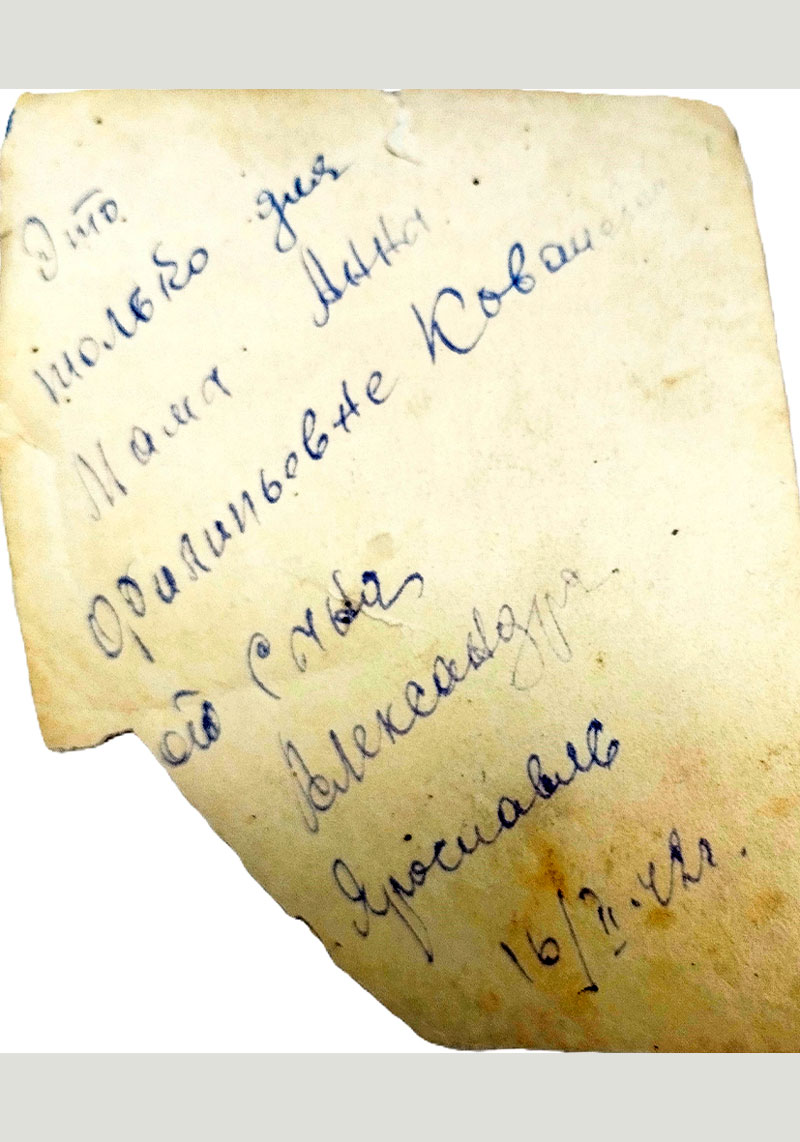 Это
только для
Мама Анна
Филипьевне
от Сына
Александра
Ярославль
16/II.42г.